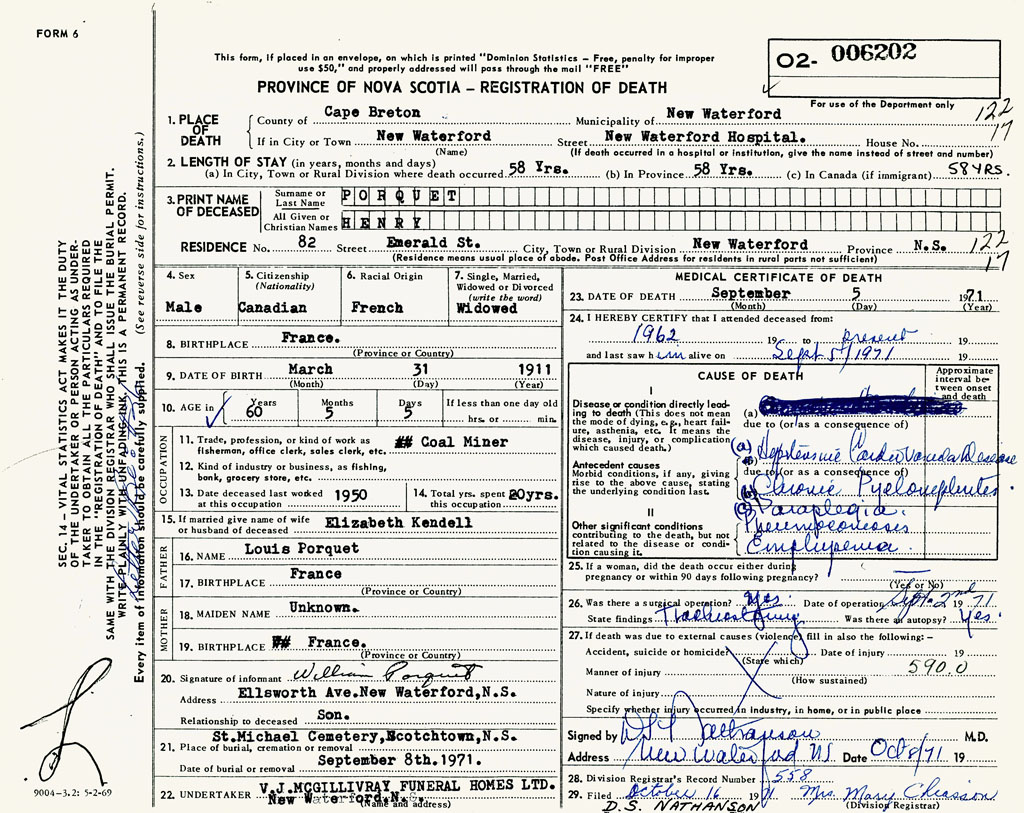 FORM 6
This form, if placed in an envelope, on which is printed "Dominion Statistics – Free, penalty for improper
use $50," and properly addressed will pass through the mail "FREE"
O2- 006202
PROVINCE OF NOVA SCOTIA – REGISTRATION OF DEATH
For use of the Department only
122
17
1. PLACE OF DEATH
County of Cape Breton Municipality of New Waterford
If in City or Town New Waterford Street New Waterford Hospital. House No.
(Name) (If death occurred in a hospital or institution, give the name instead of street and number)
2. LENGTH OF STAY (in years, months and days)
(a) In City, Town or Rural Division where death occurred 58 Yrs. (b) In Province 58 Yrs. (c) In Canada (if immigrant) 58 YRS.
3. PRINT NAME OF DECEASED
Surname or Last Name PORQUET
All Given or Christian Names HENRY
RESIDENCE No. 82 Street Emerald St. City, Town or Rural Division New Waterford Province N.S. 122
17
(Residence means usual place of abode. Post Office Address for residents in rural parts not sufficient)
4. Sex
Male
5. Citizenship
(Nationality)
Canadian
6. Racial Origin
French
7. Single, Married,
Widowed or Divorced
(write the word)
Widowed
8. BIRTHPLACE France.
(Province or Country)
9. DATE OF BIRTH March 31 1911
(Month) (Day) (Year)
10. AGE in Years 60 Months 5 Days 5 If less than one day old
hrs. or min.
OCCUPATION
11. Trade, profession, or kind of work as
fisherman, office clerk, sales clerk, etc. ## Coal Miner
12. Kind of industry or business, as fishing,
bank, grocery store, etc.
13. Date deceased last worked
at this occupation 1950
14. Total yrs. spent
this occupation 20yrs.
15. If married give name of wife
or husband of deceased Elizabeth Kendell
FATHER
16. NAME Louis Porquet
17. BIRTHPLACE France
(Province or Country)
MOTHER
18. MAIDEN NAME Unknown.
19. BIRTHPLACE ## France.
(Province or Country)
20. Signature of informant William Porquet
Address Ellsworth Ave.New Waterford,N.S.
Relationship to deceased Son.
St.Michael Cemetery,Scotchtown,N.S.
21. Place of burial, cremation or removal
September 8th.1971.
Date of burial or removal
22. UNDERTAKER V.J.MCGILLIVRAY FUNERAL HOMES LTD.
New Waterford,N.S.
(Name and address)
MEDICAL CERTIFICATE OF DEATH
23. DATE OF DEATH September 5 1971
(Month) (Day) (Year)
24. I HEREBY CERTIFY that I attended deceased from:
1962 19 to present 19
and last saw him alive on Sept 5/1971 19
CAUSE OF DEATH
Approximate
interval between
onset
and death
I
Disease or condition directly leading
to death (This does not mean
the mode of dying, e.g., heart failure,
asthenia, etc. It means the
disease, injury, or complication
which caused death.)
(a)
due to (or as a consequence of)
Antecedent causes
Morbid conditions, if any, giving
rise to the above cause, stating
the underlying condition last.
(a) Hypertensive Cardiovascular Disease
due to (or as a consequence of)
(b) Chronic Pyelonephritis
(c) Paraplegia.
II
Other significant conditions
contributing to the death, but not
related to the disease or condition
causing it.
Pneumoconiosis
Emphysema.
25. If a woman, did the death occur either during
pregnancy or within 90 days following pregnancy?
(Yes or No)
26. Was there a surgical operation? Yes. Date of operation Sept. 2nd 1971
State findings Tracheostomy Was there an autopsy? Yes.
27. If death was due to external causes (violence) fill in also the following: –
Accident, suicide or homicide Date of injury 19
(State which)
Manner of injury 590.0
(How sustained)
Nature of injury
Specify whether injury occurred in industry, in home, or in public place
Signed by D S Nathanson M.D.
Address New Waterford NS Date Oct 8/71 19
28. Division Registrar's Record Number 558
29. Filed October 16 1971 Mrs. Mary Chiasson
(Division Registrar)
D.S. NATHANSON
SEC. 14 – VITAL STATISTICS ACT MAKES IT THE DUTY
OF THE UNDERTAKER OR PERSON ACTING AS UNDERTAKER
TO OBTAIN ALL THE PARTICULARS REQUIRED
IN THE "REGISTRATION OF DEATH" AND TO FILE THE
SAME WITH THE DIVISION REGISTRAR WHO SHALL ISSUE THE BURIAL PERMIT.
WRITE PLAINLY WITH UNFADING INK, THIS IS A PERMANENT RECORD.
Every item of information should be carefully supplied. (See reverse side for instructions.)
9004-3.2: 5-2-69